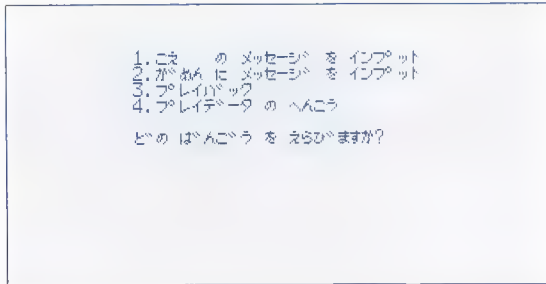 1.こえ の メッセージ を インプット
2.がめん に メッセージ を インプット
3.プレイバック
4.プレイデータ の へんこう
どの ばんごう を えらびますか?